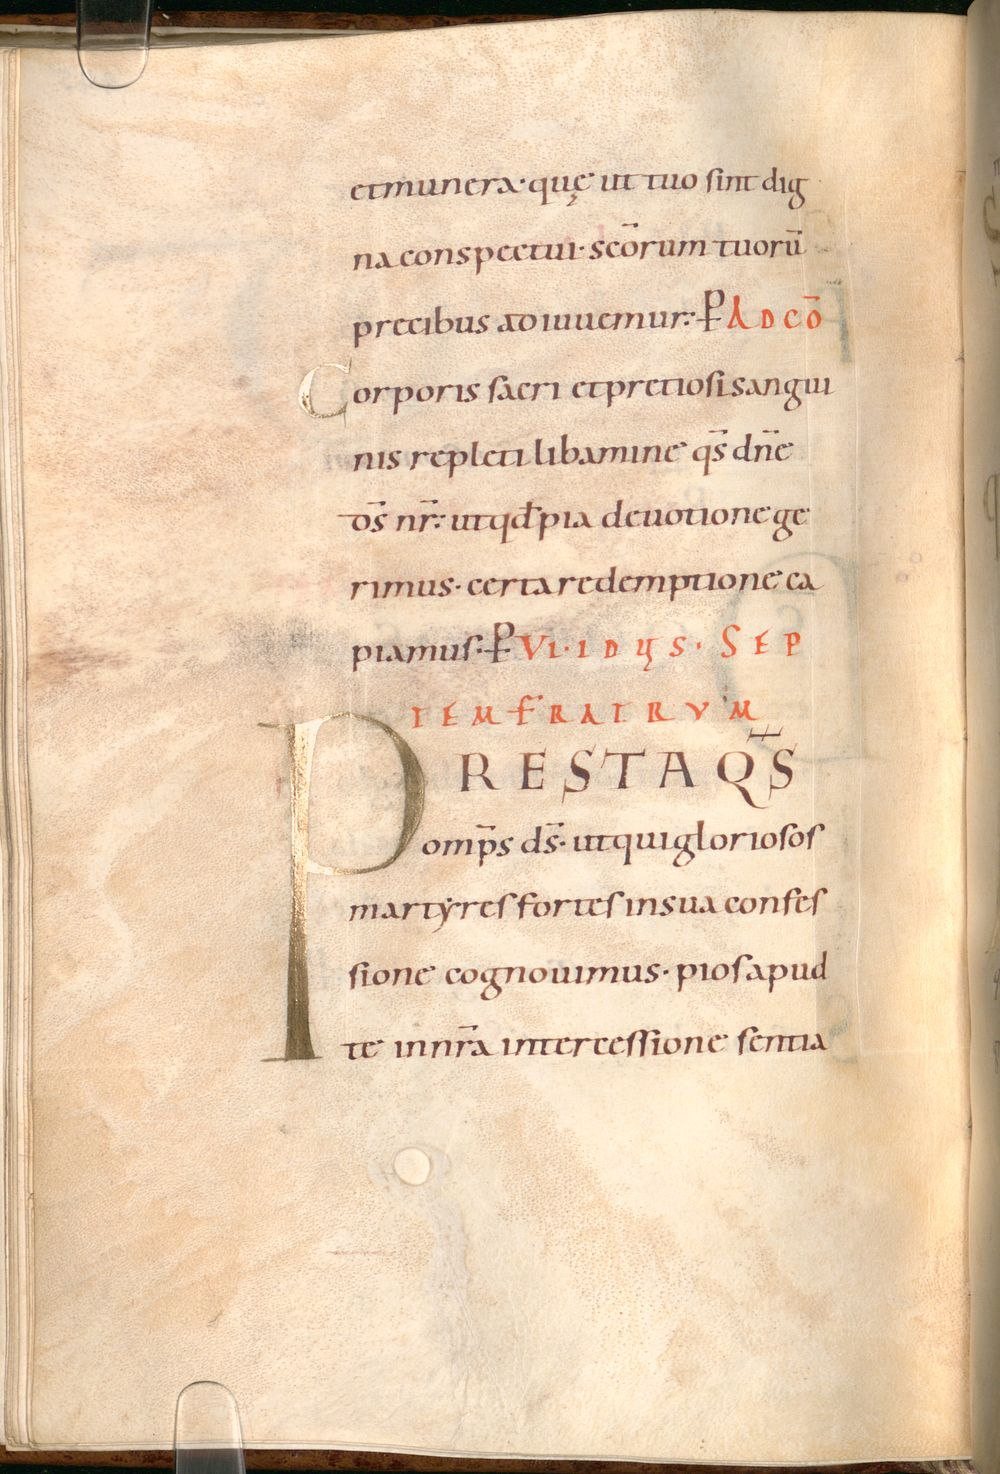 et munera· quę ut tuo sint dig
na conspectui· scōrum tuorū
precibus adiuuemur:· P AD CŌ
Corporis sacri et pretiosi sangui
nis repleti libamine qs̄ dn̄e
ds̄ nr̄:· ut qđ pia deuotione ge
rimus· certa redemptione ca
piamus:· P VI· IDUS· SEP
TEM FRATRVM
PRESTA QS̄
omp̄s ds̄· ut qui gloriosos
martyres fortes in sua confes
sione cognouimus· pios apud
te in nr̄a intercessione sentia